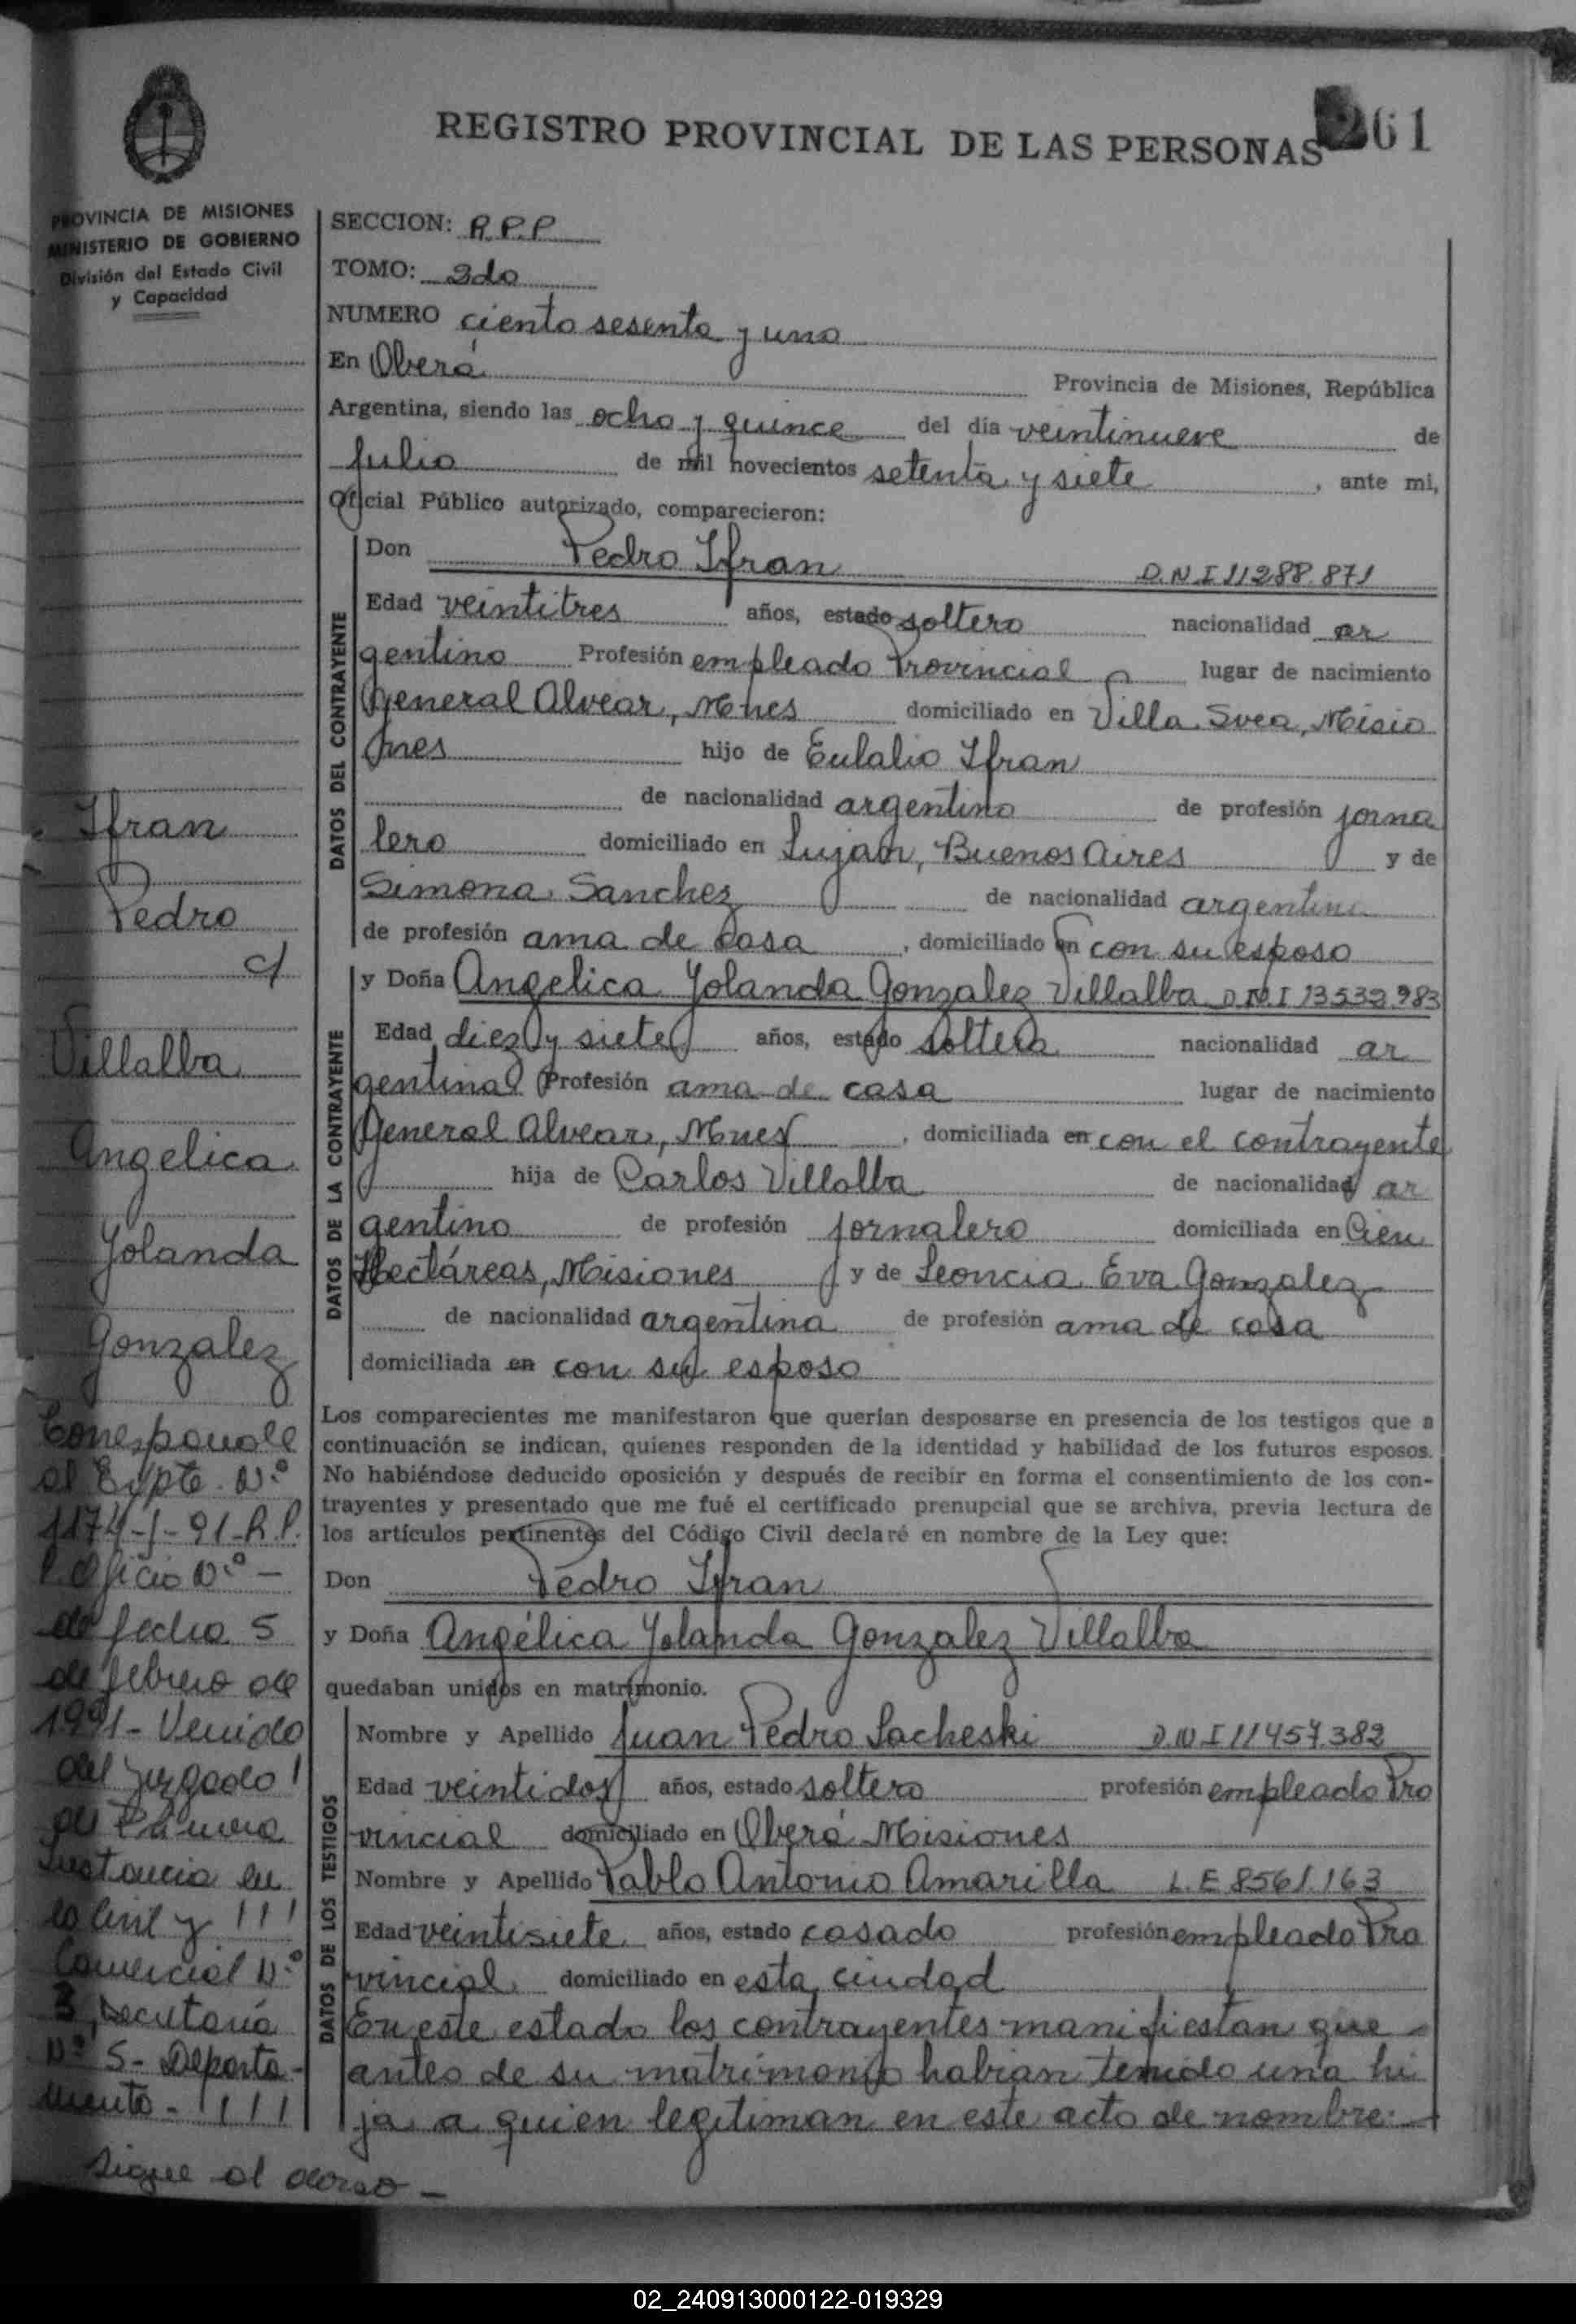 REGISTRO PROVINCIAL DE LAS PERSONAS
261
PROVINCIA DE MISIONES
MINISTERIO DE GOBIERNO
División del Estado Civil
y Capacidad
SECCION: R.P.P
TOMO: 2do
NUMERO ciento sesenta y uno
En Oberá Provincia de Misiones, República
Argentina, siendo las ocho y quince del día veintinueve de
Julio de mil novecientos setenta y siete, ante mi,
Oficial Público autorizado, comparecieron:
DATOS DEL CONTRAYENTE
Don Pedro Ifran D.N.I 11288.871
Edad veintitres años, estado soltero nacionalidad ar
gentino Profesión empleado Provincial lugar de nacimiento
General Alvear, Mnes domiciliado en Villa Svea, Misio
nes hijo de Eulalio Ifran
de nacionalidad argentino de profesión jorna
lero domiciliado en Lujan, Buenos Aires y de
Simona Sanchez de nacionalidad argentina
de profesión ama de casa, domiciliado en con su esposo
DATOS DE LA CONTRAYENTE
y Doña Angelica Yolanda Gonzalez Villalba D.N.I 13532983
Edad diez y siete años, estado soltera nacionalidad ar
gentina Profesión ama de casa lugar de nacimiento
General Alvear, Mnes, domiciliada en con el contrayente
hija de Carlos Villalba de nacionalidad ar
gentino de profesión jornalero domiciliada en Cien
Hectáreas, Misiones y de Leoncia Eva Gonzalez
de nacionalidad argentina de profesión ama de casa
domiciliada en con su esposo
Los comparecientes me manifestaron que querían desposarse en presencia de los testigos que a
continuación se indican, quienes responden de la identidad y habilidad de los futuros esposos.
No habiéndose deducido oposición y después de recibir en forma el consentimiento de los con-
trayentes y presentado que me fué el certificado prenupcial que se archiva, previa lectura de
los artículos pertinentes del Código Civil declaré en nombre de la Ley que:
Don Pedro Ifran
y Doña Angélica Yolanda Gonzalez Villalba
quedaban unidos en matrimonio.
DATOS DE LOS TESTIGOS
Nombre y Apellido Juan Pedro Sacheski D.N.I 11457.382
Edad veintidos años, estado soltero profesión empleado Pro
vincial domiciliado en Oberá Misiones
Nombre y Apellido Pablo Antonio Amarilla L.E 8561.163
Edad veintisiete años, estado casado profesión empleado Pro
vincial domiciliado en esta ciudad
En este estado los contrayentes manifiestan que
antes de su matrimonio habian tenido una hi
ja a quien legitiman en este acto de nombre:
Ifran
Pedro
c/
Villalba
Angelica
Yolanda
Gonzalez
Corresponde
al Expte. N.º
1174-I-91-R.P.
P. Oficio N.º -
de fecha 5
de febrero de
1991- Venido
del Juzgado
de Primera
Instancia en
lo Civil y
Comercial N.º
3, Secretaría
Nº 5- Departa-
mento-
Sigue al dorso-
02_240913000122-019329